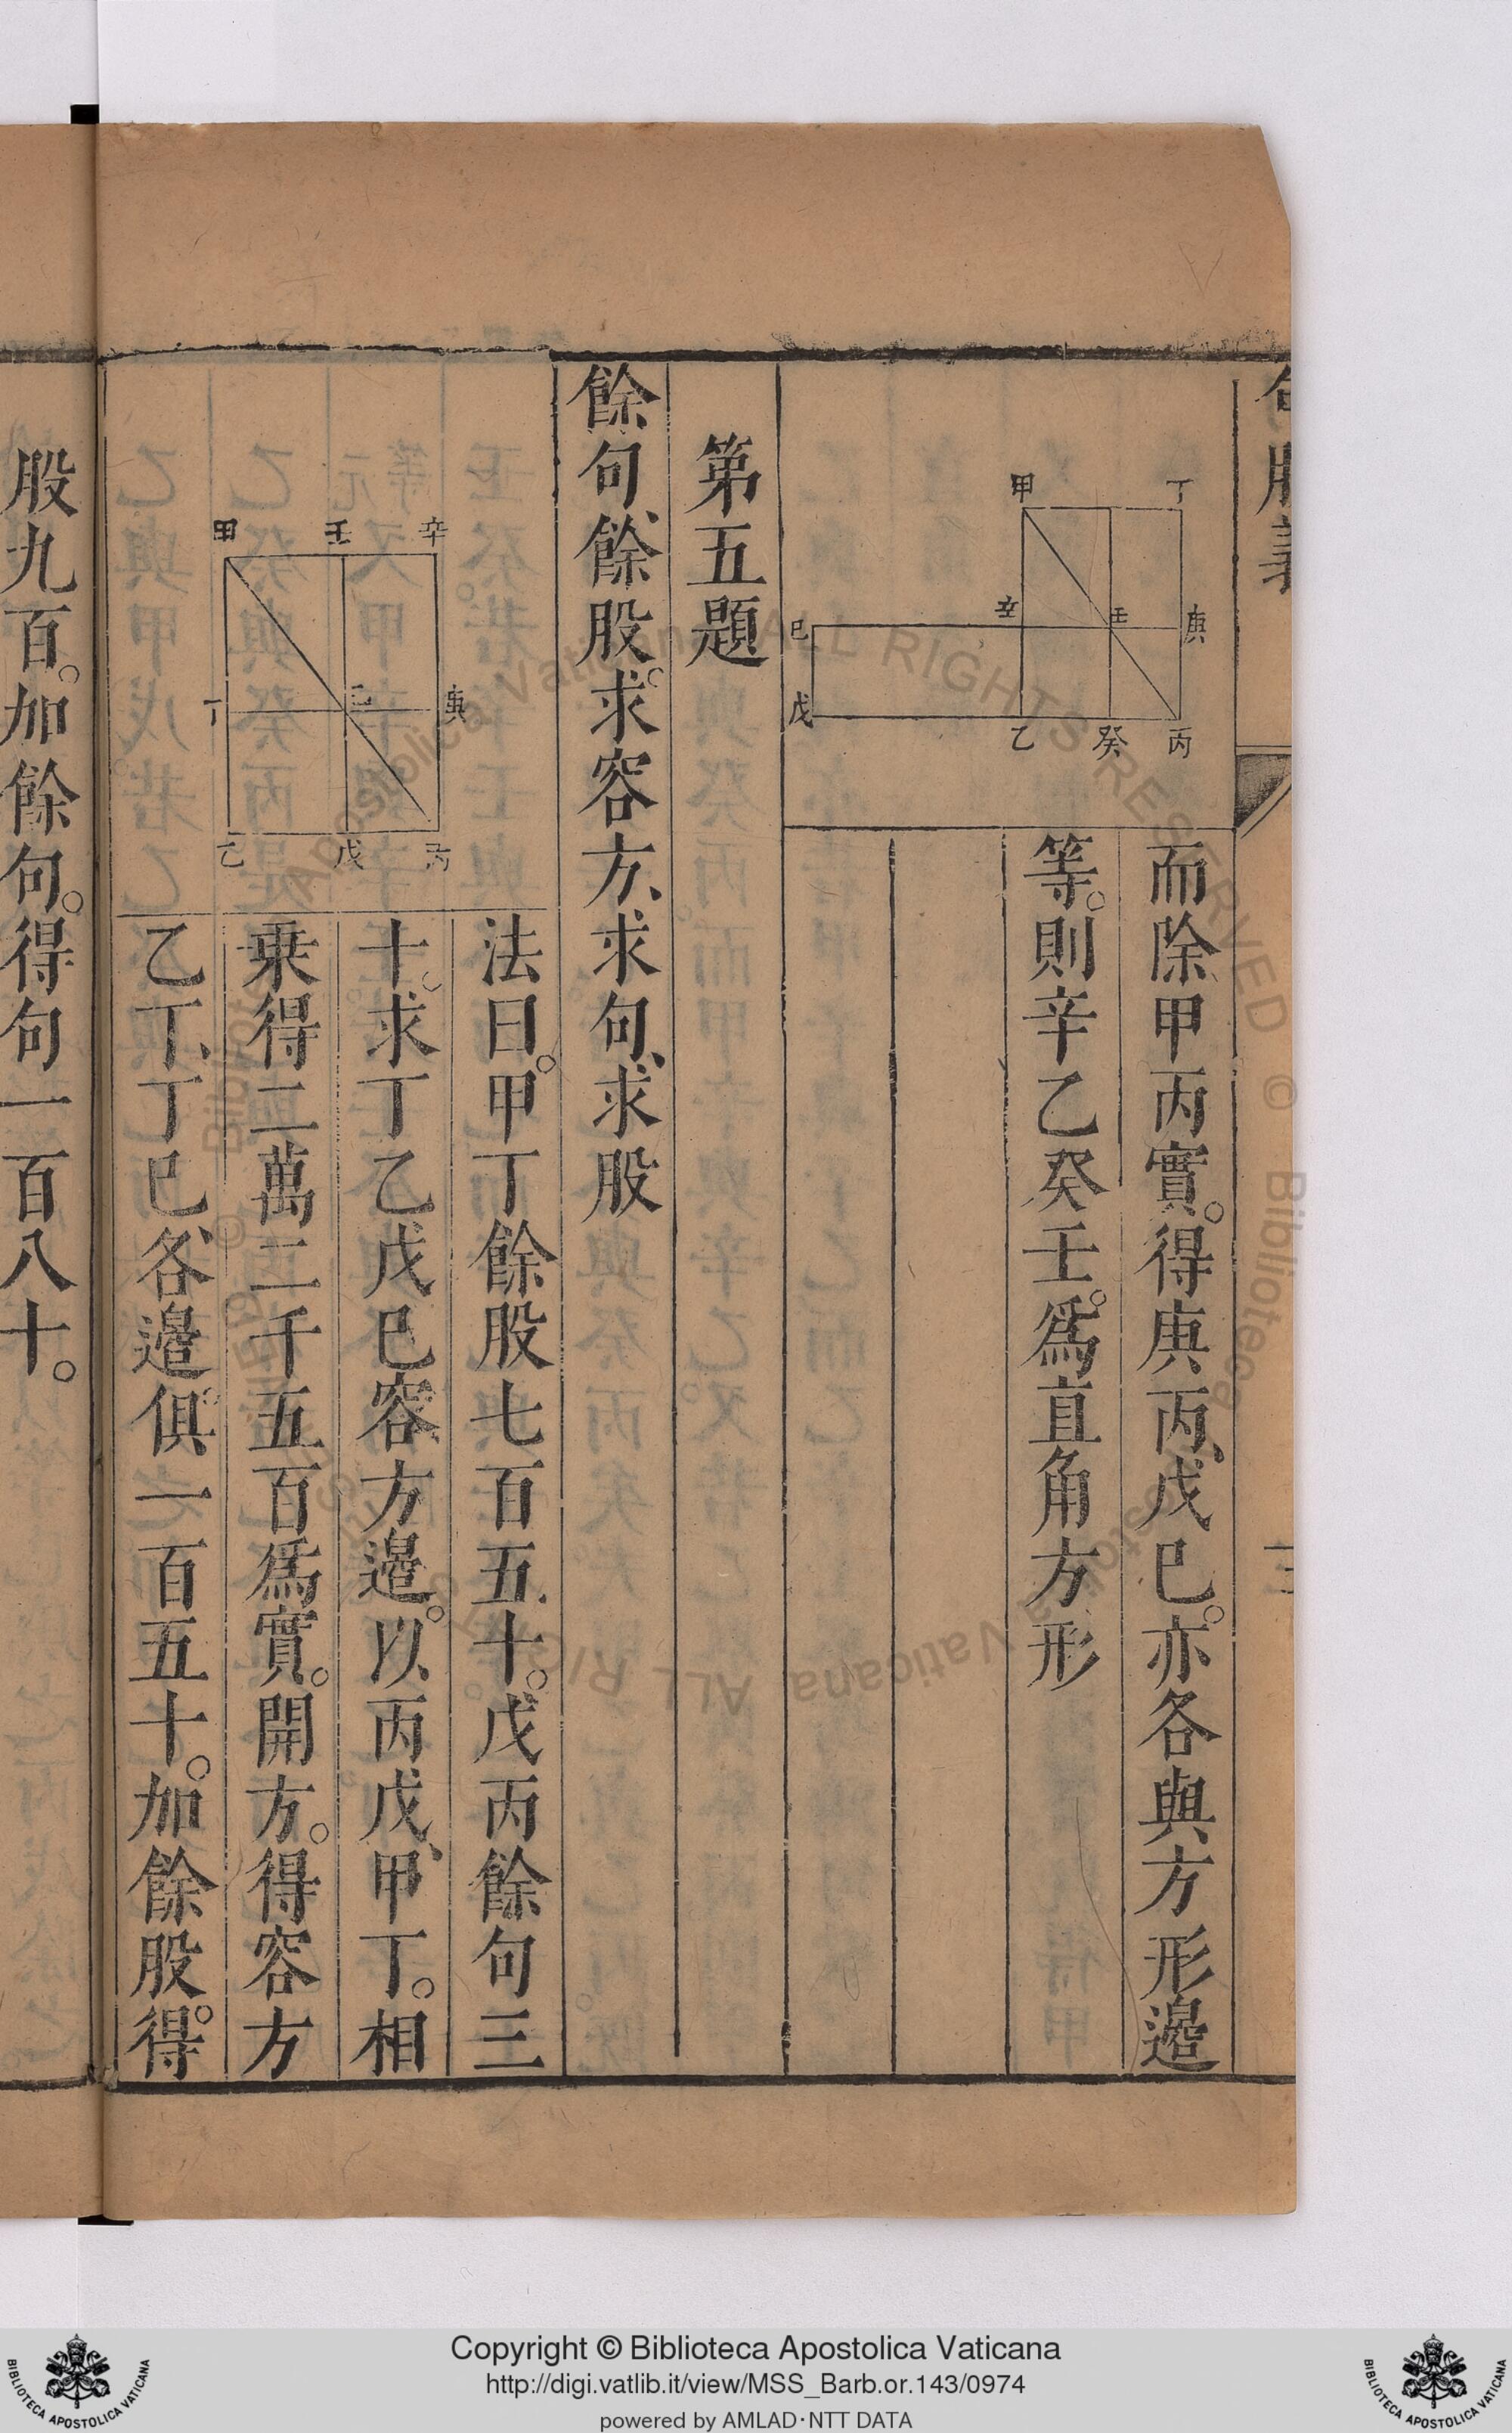 句股義
丁
甲
庚
壬
辛
巳
丙
癸
乙
戊
而除甲丙實。得庚丙、戊巳。亦各與方形邊
等。則辛乙癸壬。爲直角方形
第五題
餘句、餘股。求容方、求句、求股
辛
壬
甲
庚
巳
丁
丙
戊
乙
法曰。甲丁餘股七百五十。戊丙餘句三
十。求丁乙戊巳容方邊。以丙戊、甲丁。相
乗得二萬二千五百爲實。開方。得容方
乙丁、丁巳、各邊俱一百五十。加餘股。得
股九百。加餘句。得句一百八十。
Copyright © Biblioteca Apostolica Vaticana
http://digi.vatlib.it/view/MSS_Barb.or.143/0974
powered by AMLAD·NTT DATA
BIBLIOTECA APOSTOLICA VATICANA
BIBLIOTECA APOSTOLICA VATICANA